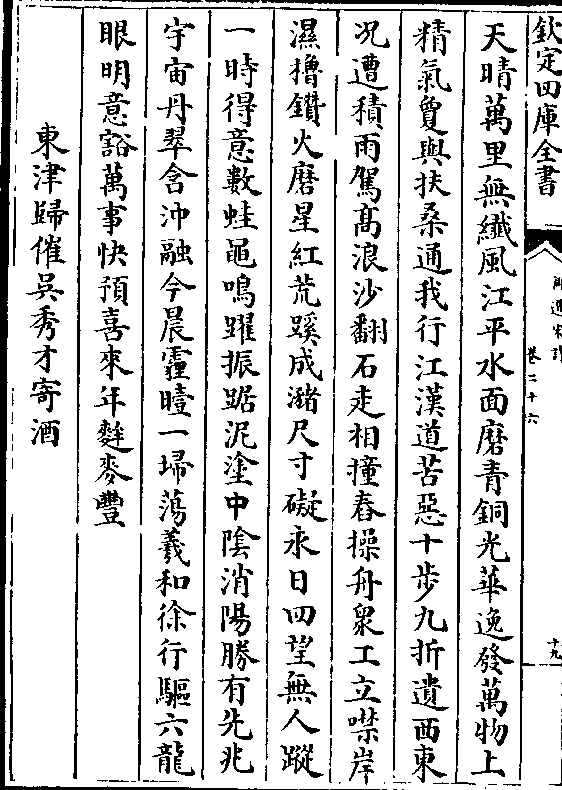 欽定四庫全書
卷二十六
十九
天晴萬里無纖風江平水面磨青銅光華逸發萬物上
精氣敻與扶桑通我行江漢道苦惡十步九折遺西東
况遭積雨駕髙浪沙翻石走相撞舂操舟衆工立噤岸
濕櫓鑽火磨星紅荒蹊成潴尺寸礙永日四望無人蹤
一時得意數蛙黽鳴躍振踞泥塗中陰消陽勝有先兆
宇宙丹翠含沖融今晨霾曀一埽蕩羲和徐行驅六龍
眼明意豁萬事快預喜來年麰麥豐
東津歸催吳秀才寄酒